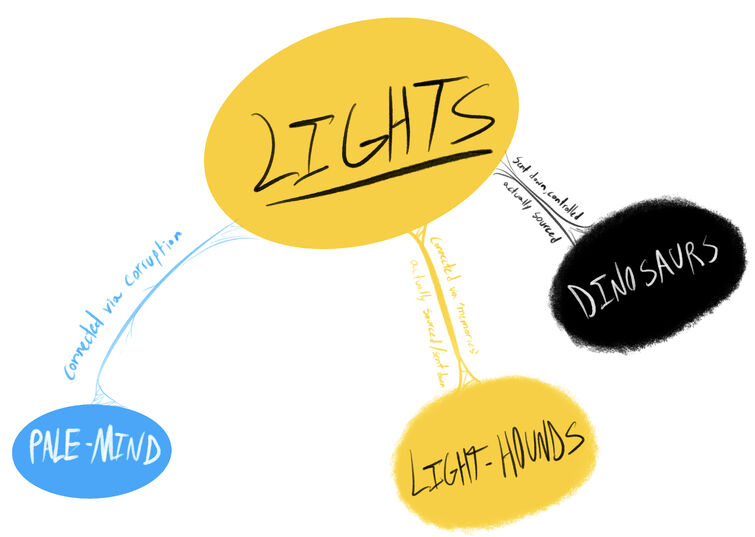 LIGHTS
Sent down, controlled
actually sourced
DINOSAURS
Connected via corruption
PALE-MIND
Connected via memories
actually sourced/sent down
LIGHT-HOUNDS